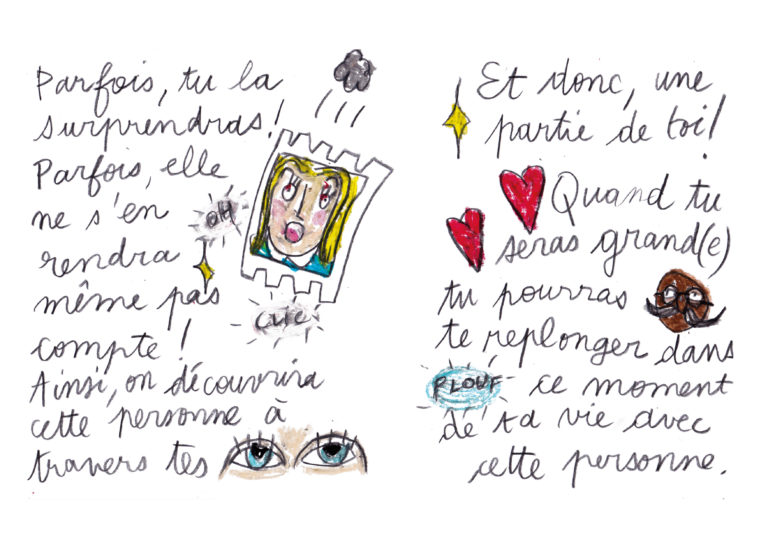 Parfois, tu la
surprendras!
Parfois, elle
ne s'en
OH
rendra
même pas
CLIC
compte !
Ainsi, on découvrira
cette personne à
travers tes
Et donc, une
partie de toi!
Quand tu
seras grand(e)
tu pourras
te replonger dans
PLOUF
ce moment
de ta vie avec
cette personne.